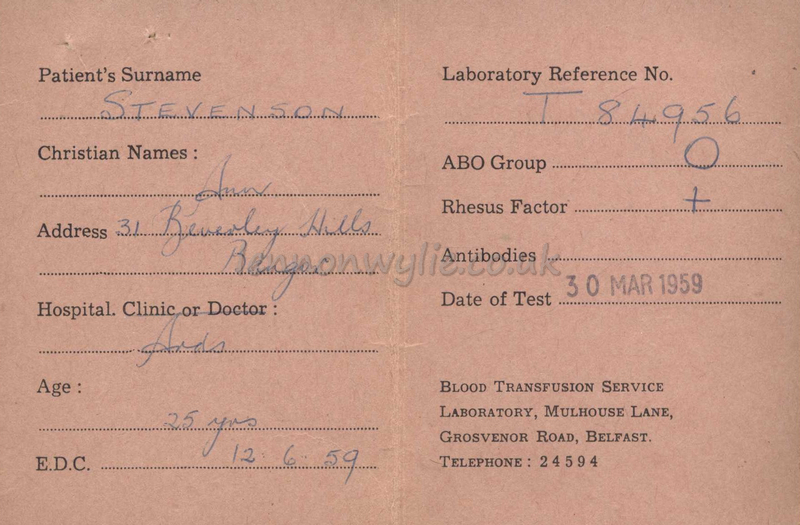 Patient's Surname
STEVENSON
Christian Names :
Ann
Address 31 Beverley Hills
Bangor
Hospital. Clinic or Doctor :
Ards
Age :
25 yrs
E.D.C. 12. 6. 59
Laboratory Reference No.
T 84956
ABO Group O
Rhesus Factor +
Antibodies
Date of Test 30 MAR 1959
BLOOD TRANSFUSION SERVICE
LABORATORY, MULHOUSE LANE,
GROSVENOR ROAD, BELFAST.
TELEPHONE : 24594